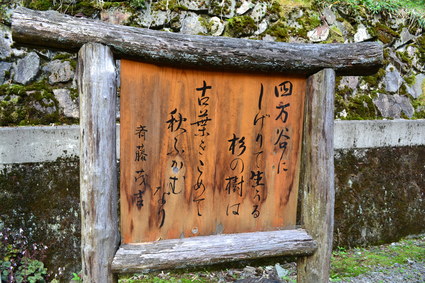 四方谷に
しげりて生うる
杉の樹は
古葉をこめて
秋ふかむなり
斉藤茂吉